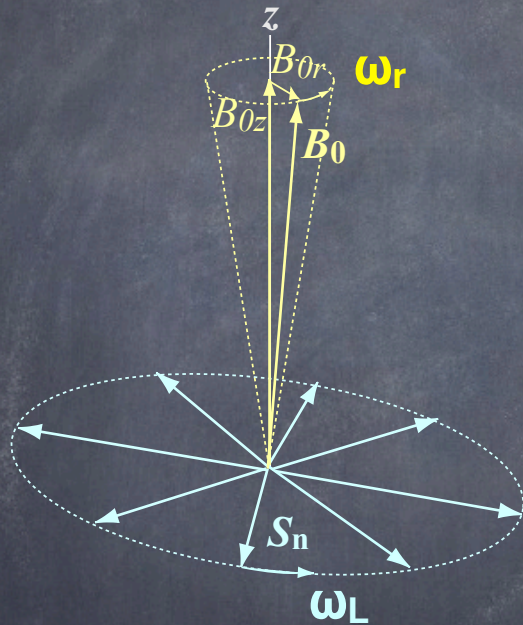 z
B0r
ωr
B0z
B0
Sn
ωL